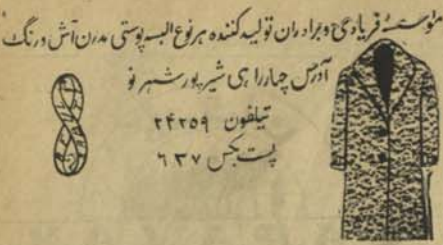 مؤسسهٔ فریادی و برادران تولید کننده هر نوع البسه پوستی مدرن آش و رنگ
آدرس چهارراهی شیرپور شهر نو
تیلفون ۲۴۲۵۹
پست بکس ۶۳۷